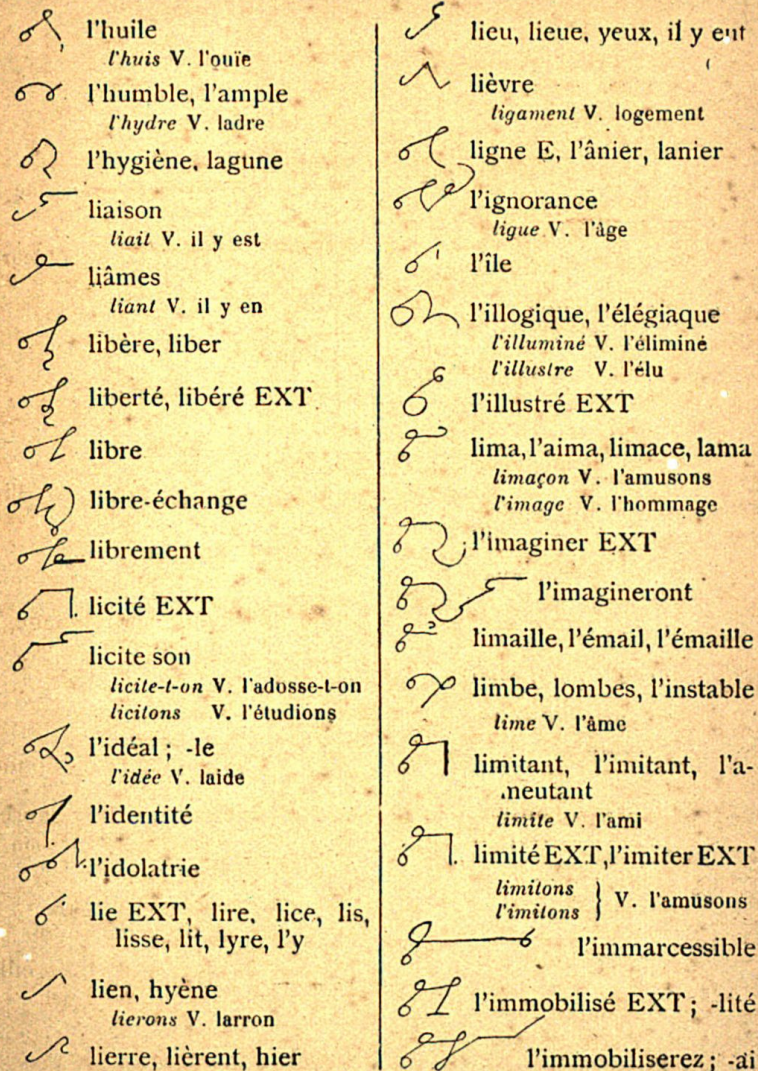 l'huile
l'huis V. l'ouïe
l'humble, l'ample
l'hydre V. ladre
l'hygiène, lagune
liaison
liait V. il y est
liâmes
liant V. il y en
libère, liber
liberté, libéré EXT
libre
libre-échange
librement
licité EXT
licite son
licite-t-on V. l'adosse-t-on
licitons V. l'étudions
l'idéal ; -le
l'idée V. laide
l'identité
l'idolatrie
lie EXT, lire, lice, lis,
lisse, lit, lyre, l'y
lien, hyène
lierons V. larron
lierre, lièrent, hier
lieu, lieue, yeux, il y eut
lièvre
ligament V. logement
ligne E, l'ânier, lanier
l'ignorance
ligue V. l'âge
l'île
l'illogique, l'élégiaque
l'illuminé V. l'éliminé
l'illustre V. l'élu
l'illustré EXT
lima, l'aima, limace, lama
limaçon V. l'amusons
l'image V. l'hommage
l'imaginer EXT
l'imagineront
limaille, l'émail, l'émaille
limbe, lombes, l'instable
lime V. l'âme
limitant, l'imitant, l'a-
meutant
limite V. l'ami
limité EXT, l'imiter EXT
limitons
l'imitons } V. l'amusons
l'immarcessible
l'immobilisé EXT ; -lité
l'immobiliserez ; -ai